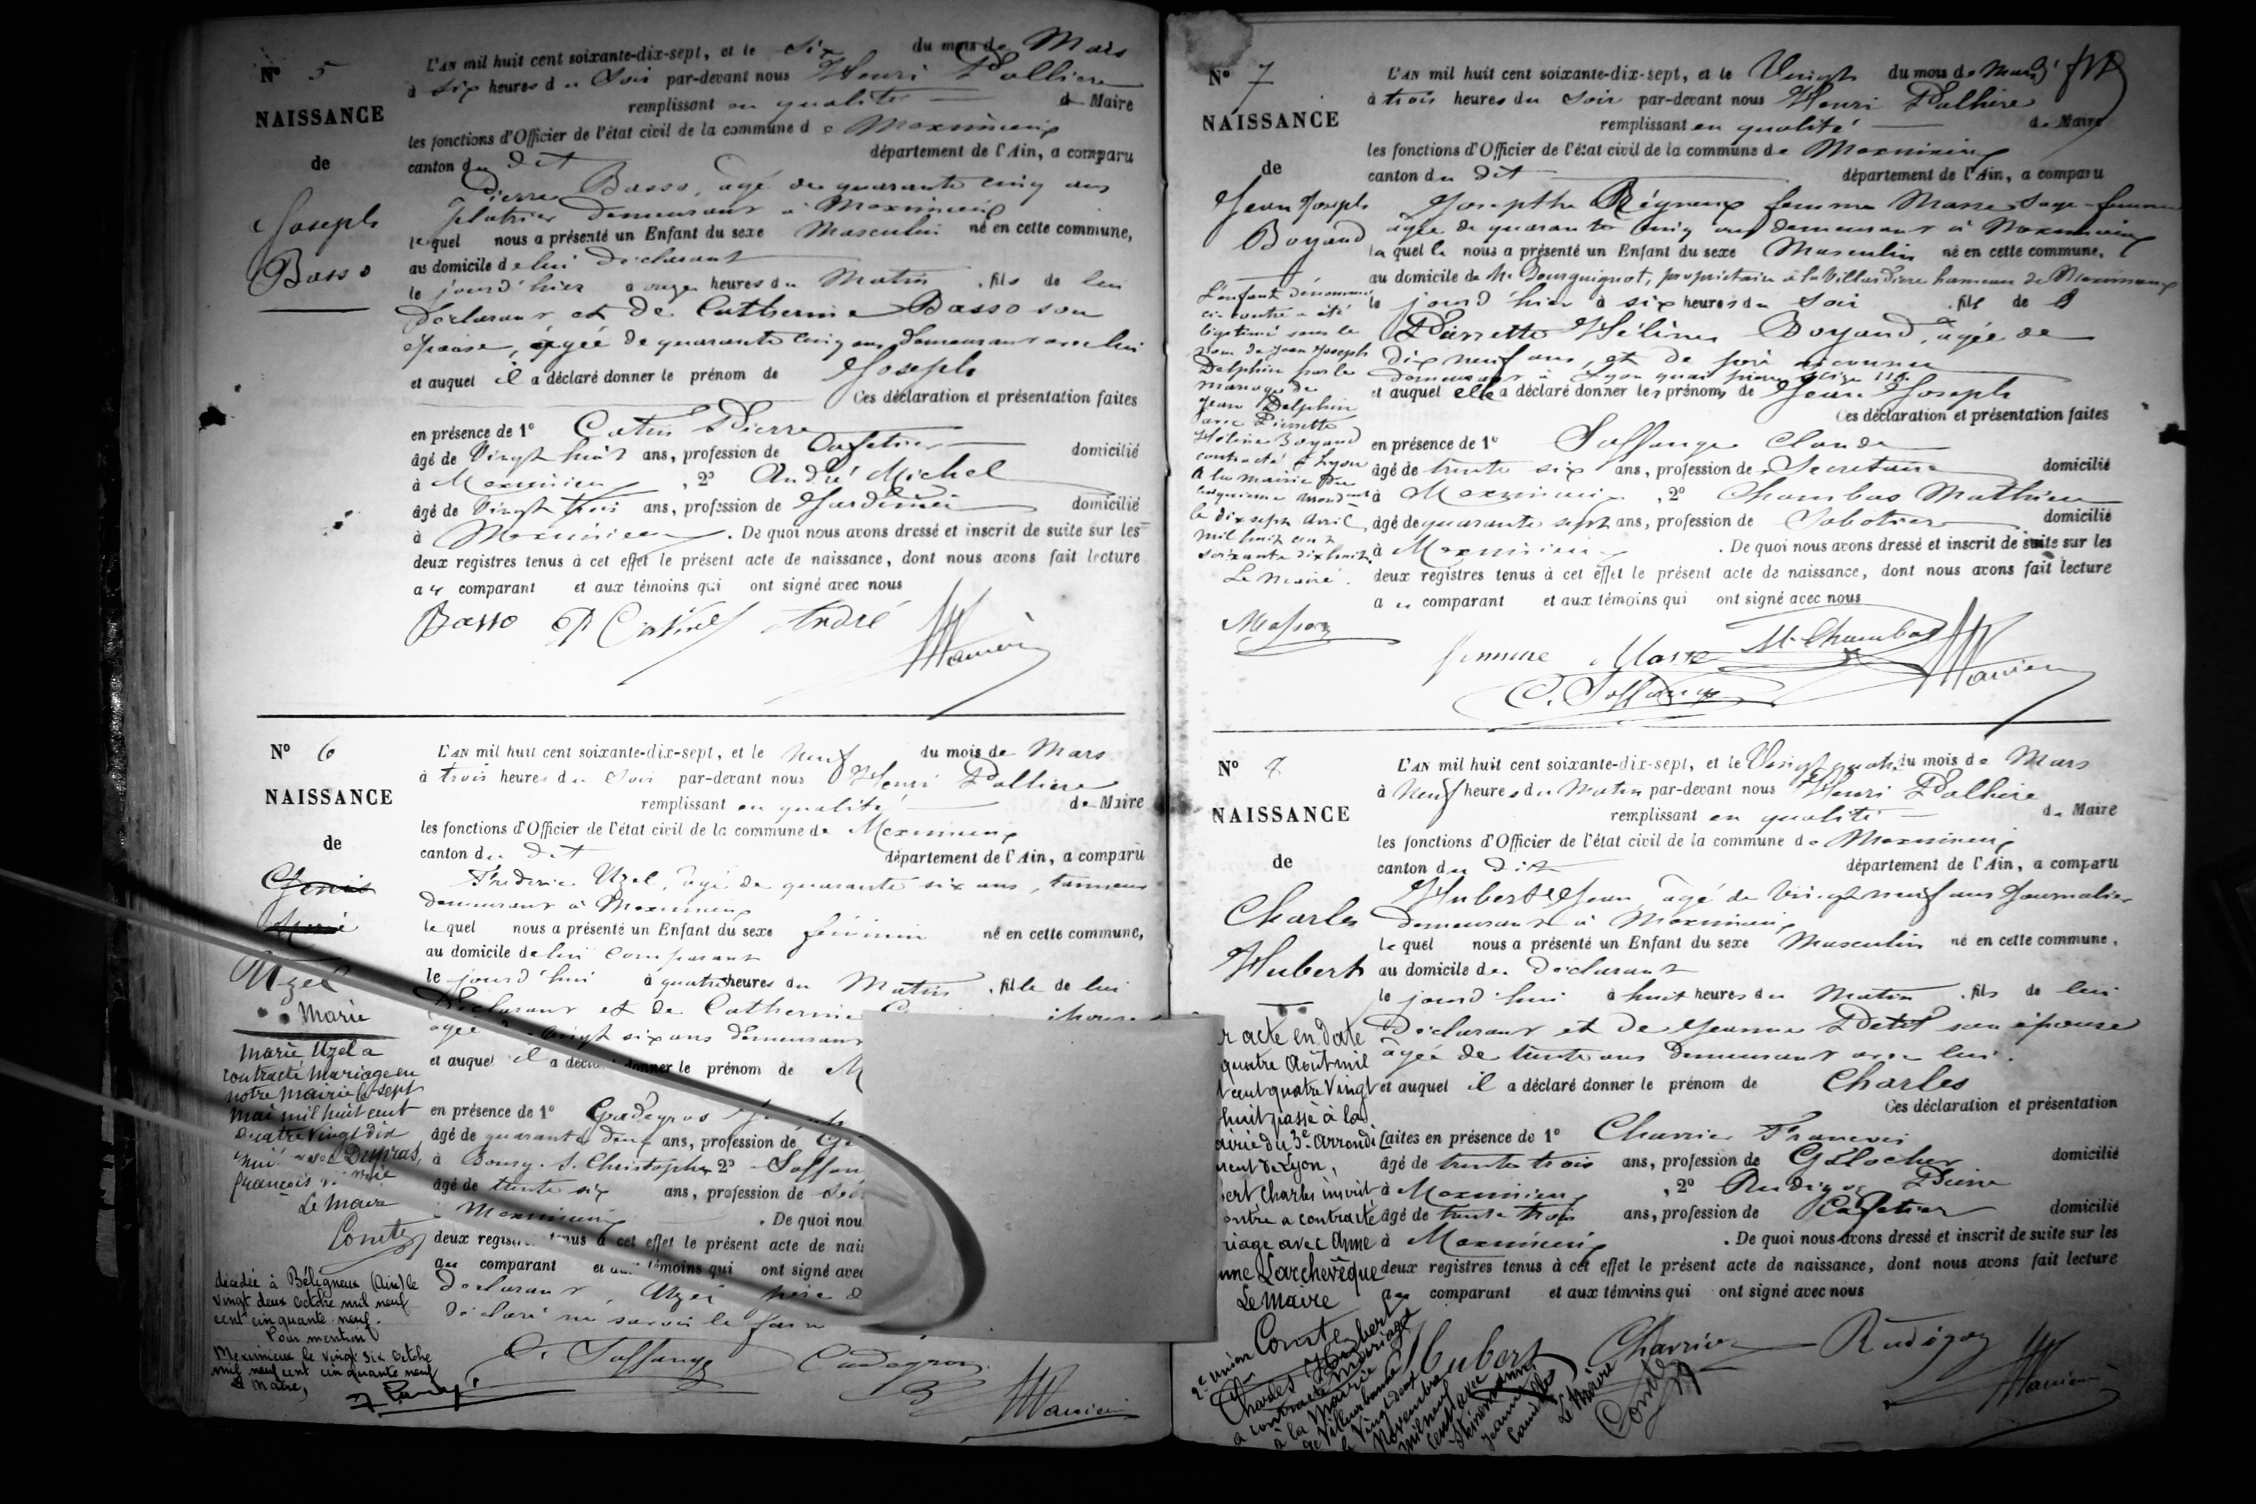 N° 5
NAISSANCE
de
Joseph
Basso
L'AN mil huit cent soixante-dix-sept, et le Six du mois de Mars
à six heures du Soir par-devant nous Henri Pallière
remplissant en qualité de Maire
les fonctions d'Officier de l'état civil de la commune de Meximieux
canton du dit département de l'Ain, a comparu
Pierre Basso, âgé de quarante cinq ans
plâtrier demeurant à Meximieux
lequel nous a présenté un Enfant du sexe Masculin né en cette commune,
au domicile de lui déclarant
le jourd'hier à onze heures du Matin, fils de lui
déclarant et de Catherine Basso son
épouse, âgée de quarante cinq ans demeurant avec lui
et auquel il a déclaré donner le prénom de Joseph
Ces déclaration et présentation faites
en présence de 1° Catin Pierre
âgé de Vingt huit ans, profession de Cafetier domicilié
à Meximieux, 2° André Michel
âgé de Vingt trois ans, profession de Jardinier domicilié
à Meximieux. De quoi nous avons dressé et inscrit de suite sur les
deux registres tenus à cet effet le présent acte de naissance, dont nous avons fait lecture
au comparant et aux témoins qui ont signé avec nous
Basso P Catin André
N° 6
NAISSANCE
de
Uzel
Marie
Marie Uzel a
contracté mariage en
notre mairie le sept
mai mil huit cent
quatre vingt dix
huit avec Dupras,
françois
Le Maire
Comte
décédée à Béligneux (Ain) le
vingt deux octobre mil neuf
cent cinquante neuf.
Pour mention
Meximieux le vingt six octobre
mil neuf cent cinquante neuf
Le Maire,
L'AN mil huit cent soixante-dix-sept, et le neuf du mois de Mars
à trois heures du Soir par-devant nous Henri Pallière
remplissant en qualité de Maire
les fonctions d'Officier de l'état civil de la commune de Meximieux
canton du dit département de l'Ain, a comparu
Frédéric Uzel, âgé de quarante six ans, tanneur
demeurant à Meximieux
lequel nous a présenté un Enfant du sexe féminin né en cette commune,
au domicile de lui comparant
le jourd'hui à quatre heures du Matin, fille de lui
déclarant et de Catherine
âgée de Vingt six ans demeurant
et auquel il a déclaré donner le prénom de M
en présence de 1°
âgé de quarante deux ans, profession de
à Bourg-St-Christophe, 2° Soffan
âgé de trente six ans, profession de
à Meximieux. De quoi nou
deux registres tenus à cet effet le présent acte de nais
au comparant et aux témoins qui ont signé avec
déclarant, Uzel père
déclaré ne savoir le faire
C. Soffange
N° 7
NAISSANCE
de
Jean Joseph
Boyand
L'enfant dénommé
ci-contre a été
légitimé sous le
nom de Jean Joseph
Delphin par le
mariage de
Jean Delphin
avec Pierrette
Hélène Boyand
contracté à Lyon
à la mairie du
arrondt
le dix sept Avril
mil huit cent
soixante dix huit.
Le Maire.
L'AN mil huit cent soixante-dix-sept, et le Vingt du mois de Mars
à trois heures du Soir par-devant nous Henri Pallière
remplissant en qualité de Maire
les fonctions d'Officier de l'état civil de la commune de Meximieux
canton du dit département de l'Ain, a comparu
Josepthe Régneux femme Masse Sage-femme
âgée de quarante cinq ans demeurant à Meximieux
laquelle nous a présenté un Enfant du sexe Masculin né en cette commune,
au domicile de Mr Bourguignot, propriétaire à la Villardière hameau de Meximieux
le jourd'hier à six heures du Soir, fils de
Pierrette Hélène Boyand, âgée de
dix neuf ans, et de père inconnu
demeurant à Lyon quai pierre scize 118
et auquel elle a déclaré donner les prénoms de Jean Joseph
Ces déclaration et présentation faites
en présence de 1° Soffange Claude
âgé de trente six ans, profession de Secrétaire domicilié
à Meximieux, 2° Chambas Mathieu
âgé de quarante sept ans, profession de Sabotier domicilié
à Meximieux. De quoi nous avons dressé et inscrit de suite sur les
deux registres tenus à cet effet le présent acte de naissance, dont nous avons fait lecture
au comparant et aux témoins qui ont signé avec nous
femme Masse M. Chambas
C. Soffange
N° 7
NAISSANCE
de
Charles
Hubert
r acte en date
quatre Août mil
t cent quatre vingt
huit passé à la
airie du 3e arrondi
ment de Lyon,
bert Charles inscrit
ontre a contracté
riage avec Anne
nne Larchevêque
Le Maire
Comte
2e union
Charles Hubert
a contracté mariage
à la mairie
de Villeurbanne
le Vingt deux
Novembre
mil neuf
cent avec
Jeanne
Le Maire
L'AN mil huit cent soixante-dix-sept, et le Vingt quatre du mois de Mars
à Neuf heures du Matin par-devant nous Henri Pallière
remplissant en qualité de Maire
les fonctions d'Officier de l'état civil de la commune de Meximieux
canton du dit département de l'Ain, a comparu
Hubert Jean, âgé de Vingt neuf ans Journalier
demeurant à Meximieux
lequel nous a présenté un Enfant du sexe Masculin né en cette commune,
au domicile du déclarant
le jourd'hui à huit heures du Matin, fils de lui
déclarant et de Jeanne Petit son épouse
âgée de trente ans demeurant avec lui.
et auquel il a déclaré donner le prénom de Charles
Ces déclaration et présentation
faites en présence de 1° Charrier François
âgé de trente trois ans, profession de Galocher domicilié
à Meximieux, 2° Rudigoz Pierre
âgé de trente trois ans, profession de Cafetier domicilié
à Meximieux. De quoi nous avons dressé et inscrit de suite sur les
deux registres tenus à cet effet le présent acte de naissance, dont nous avons fait lecture
au comparant et aux témoins qui ont signé avec nous
Hubert Charrier Rudigoz